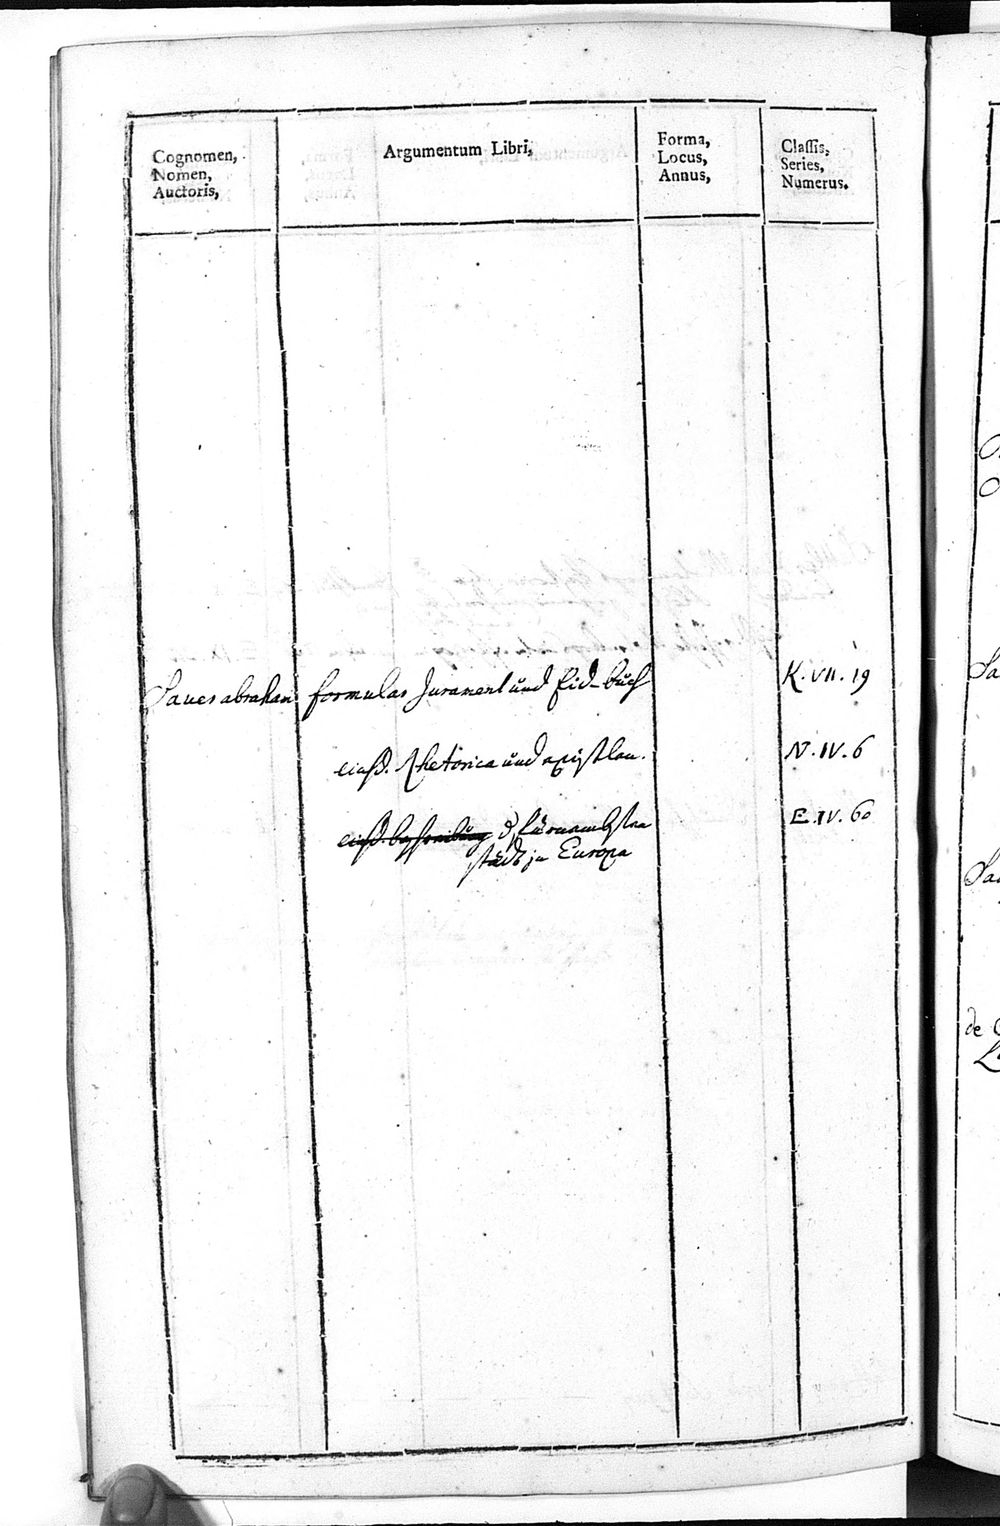 Cognomen,
Nomen,
Auctoris,
Argumentum Libri,
Forma,
Locus,
Annus,
Classis,
Series,
Numerus.
Sauer abrahan formulae Jurament und Eid-buch K. VII. 19
eiusd. Rhetorica und epistlen. N. IV. 6
eiusd. beschreibung d. fürnembsten E. IV. 60
städt in Europa